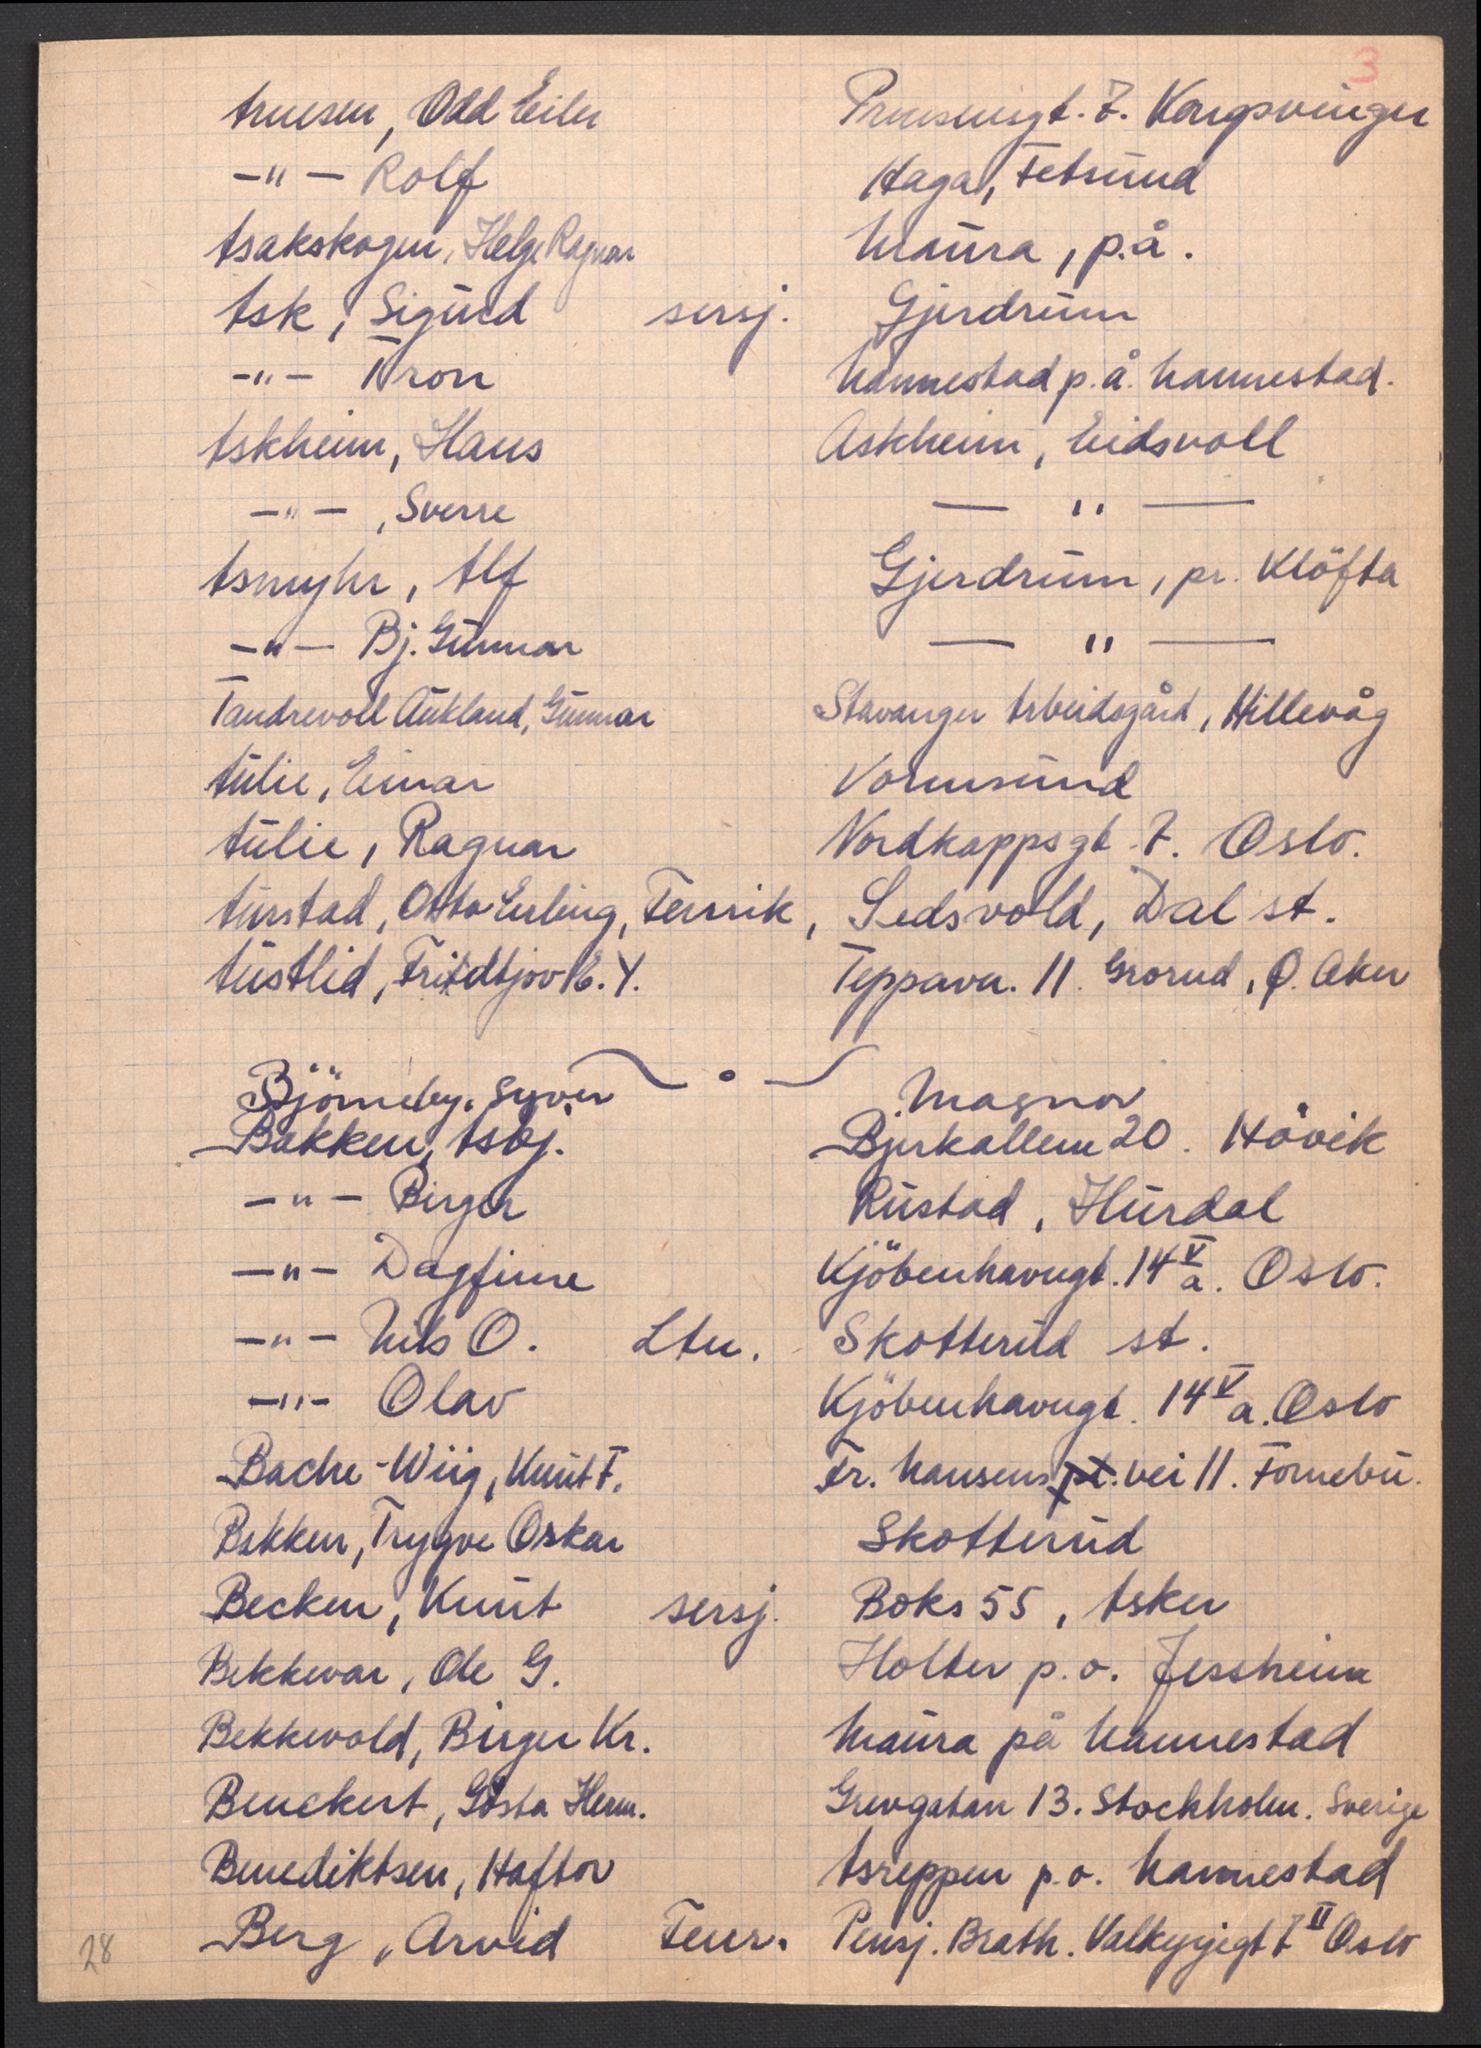 3
Arnesen, Odd Eiler Prinsensgt. 7. Kongsvinger
—"— Rolf Haga, Fetsund
Asakskogen, Helge Ragnar Maura, p.å.
Ask, Sigurd sersj. Gjerdrum
—"— Tron Nannestad p.å. Nannestad.
Askheim, Hans Askheim, Eidsvoll
—"—, Sverre — " —
Asmyhr, Alf Gjerdrum, pr. Klöfta
—"— Bj. Gunnar — " —
Tandrevoll Aukland, Gunnar Stavanger Arbeidsgård, Hillevåg
Aulie, Einar Vormsund
Aulie, Ragnar Nordkappsgt. 7. Oslo.
Aurstad, Otto Erling, Fenrik, Sedsvold, Dal st.
Austlid, Fridtjov K. Y. Teppava. 11. Grorud, Ø. Aker
Björneby, Syver Magnor
Bakken, Asbj. Bjerkalleen 20. Hövik
—"— Birger Rustad, Hurdal
—"— Dagfinne Kjöbenhavngt. 14 V a. Oslo.
—"— Nils O. Ltn. Skotterud st.
—"— Olav Kjöbenhavngt. 14 V a. Oslo
Bache-Wiig, Knut F. Fr. Nansens vei 11. Fornebu.
Bakken, Trygve Oskar Skotterud
Becken, Knut sersj. Boks 55, Asker
Bekkevar, Ole G. Holter p.o. Jessheim
Bekkevold, Birger Kr. Maura på Nannestad
Benckert, Gösta Herm. Grevgatan 13. Stockholm. Sverige
Benediktsen, Haftor Asreppen p.o. Nannestad
Berg, Arvid Fenr. Pensj. Brath. Valkyrjegt 7 II Oslo
28